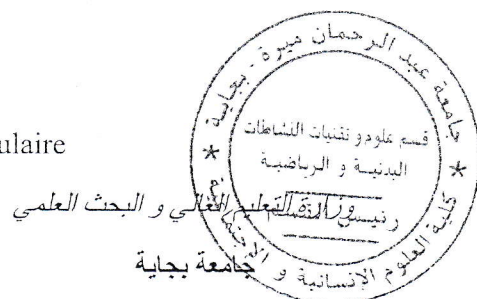 جامعة عبد الرحمان ميرة - بجاية
قسم علوم و تقنيات النشاطات
البدنية و الرياضية
رئيس القسم
كلية العلوم الإنسانية و
ulaire
وزارة التعليم العالي و البحث العلمي
جامعة بجاية